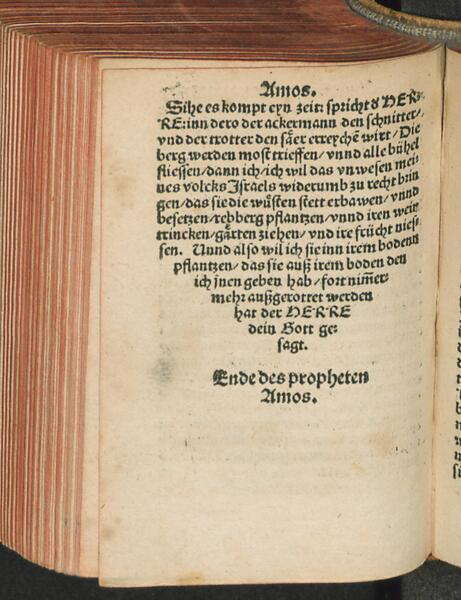 Amos.
Sihe es kompt eyn zeit: spricht d HER-
RE: inn dero der ackermann den schnitter/
vnd der trotter den säer erreychē wirt/ Die
berg werden most trieffen/ vnnd alle bühel
fliessen/ dann ich/ ich wil das vnwesen mei
nes volcks Israels widerumb zu recht brin
gen/ das sie die wůsten stett erbawen/ vnnd
besetzen/ rebberg pflantzen/ vnnd iren wein
trincken/ gårten ziehen/ vnd ire frücht niess
sen. Unnd also wil ich sie inn irem bodenn
pflantzen/ das sie auß irem boden den
ich jnen geben hab/ fort nim̄er
mehr außgerottet werden
hat der HERRE
dein Gott ge-
sagt.
Ende des propheten
Amos.